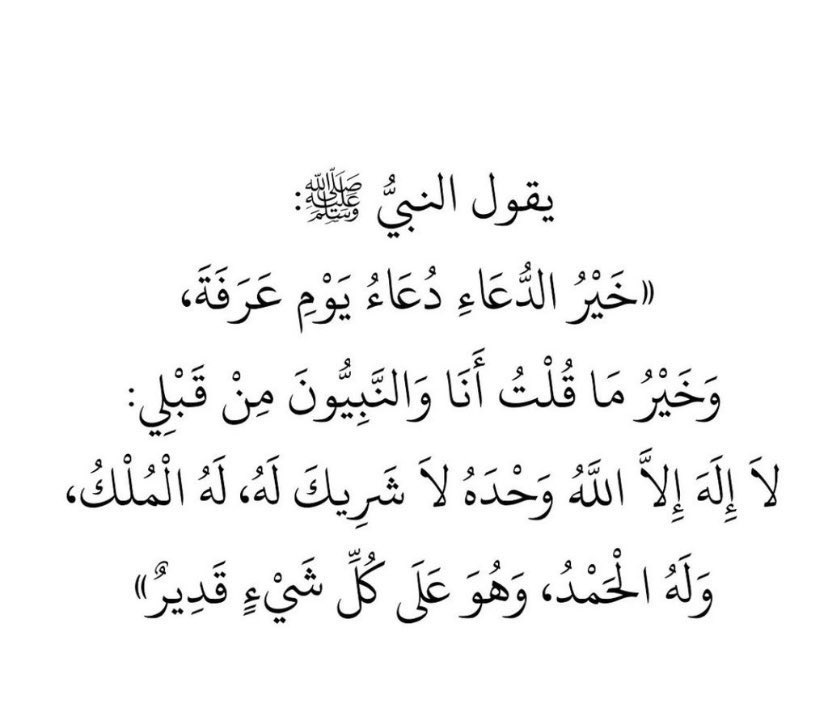 يقول النبيُّ ﷺ:
«خَيْرُ الدُّعَاءِ دُعَاءُ يَوْمِ عَرَفَةَ،
وَخَيْرُ مَا قُلْتُ أَنَا وَالنَّبِيُّونَ مِنْ قَبْلِي:
لاَ إِلَهَ إِلاَّ اللَّهُ وَحْدَهُ لاَ شَرِيكَ لَهُ، لَهُ الْمُلْكُ،
وَلَهُ الْحَمْدُ، وَهُوَ عَلَى كُلِّ شَيْءٍ قَدِيرٌ»